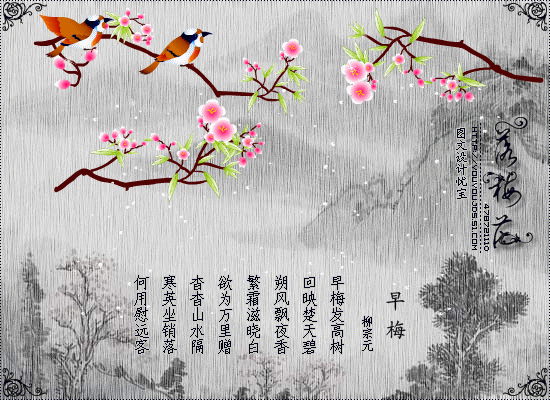 落梅花
478721110
图文设计
早梅
柳宗元
早梅发高树
回映楚天碧
朔风飘夜香
繁霜滋晓白
欲为万里赠
杳杳山水隔
寒英坐销落
何用慰远客